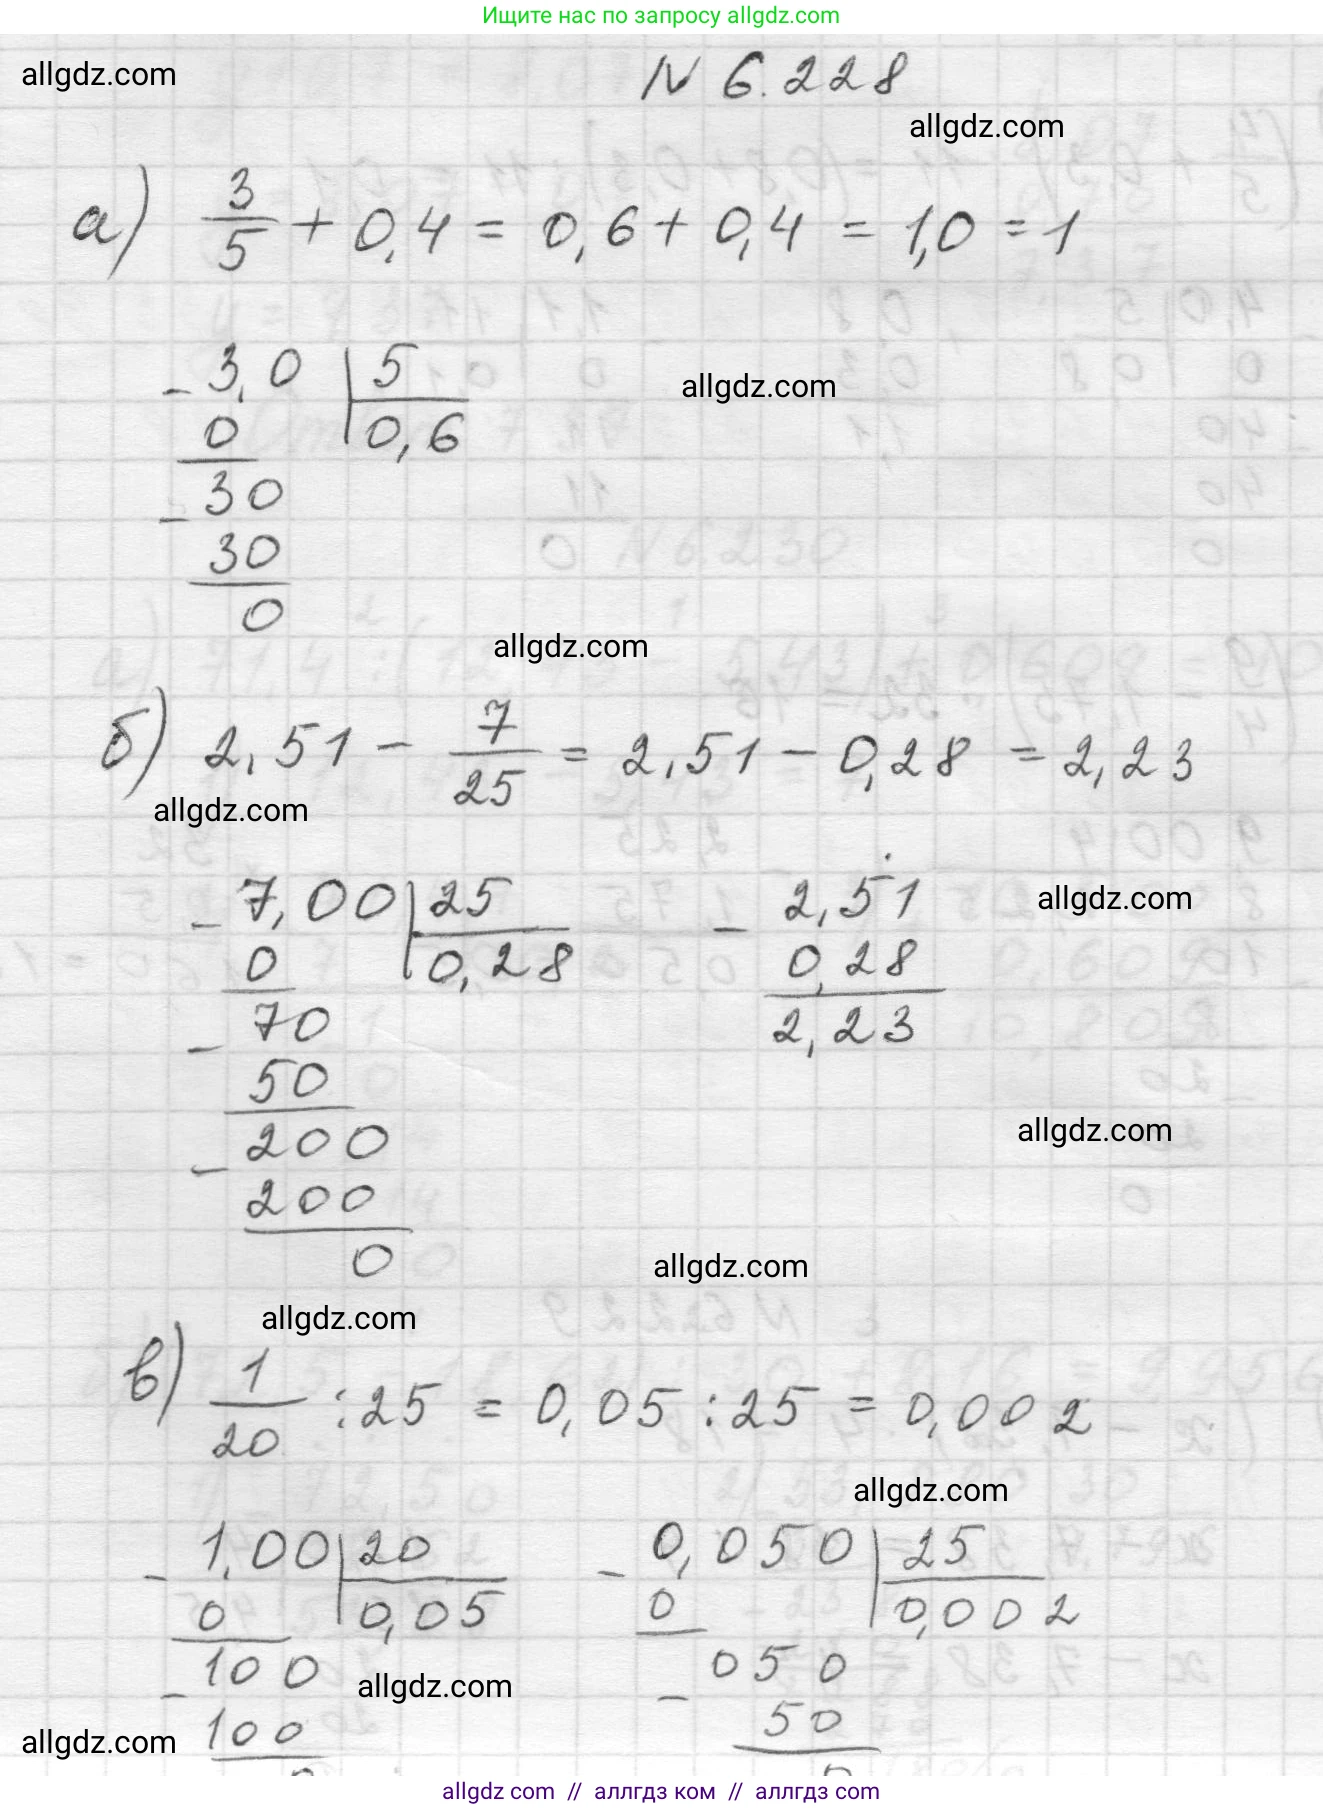 Ищите нас по запросу allgdz.com
allgdz.com
N 6.228
allgdz.com
а) 3/5 + 0,4 = 0,6 + 0,4 = 1,0 = 1
- 3,0 | 5
0 | 0,6
allgdz.com
- 30
30
0
allgdz.com
б) 2,51 - 7/25 = 2,51 - 0,28 = 2,23
allgdz.com
- 7,00 | 25 - 2,51
allgdz.com
0 | 0,28 0,28
- 70 2,23
50
allgdz.com
- 200
200
0
allgdz.com
allgdz.com
в) 1/20 : 25 = 0,05 : 25 = 0,002
allgdz.com
- 1,00 | 20 - 0,050 | 25
0 | 0,05 0 | 0,002
- 100 - 050
allgdz.com
100 50
allgdz.com
0 0
allgdz.com // аллгдз ком // аллгдз com